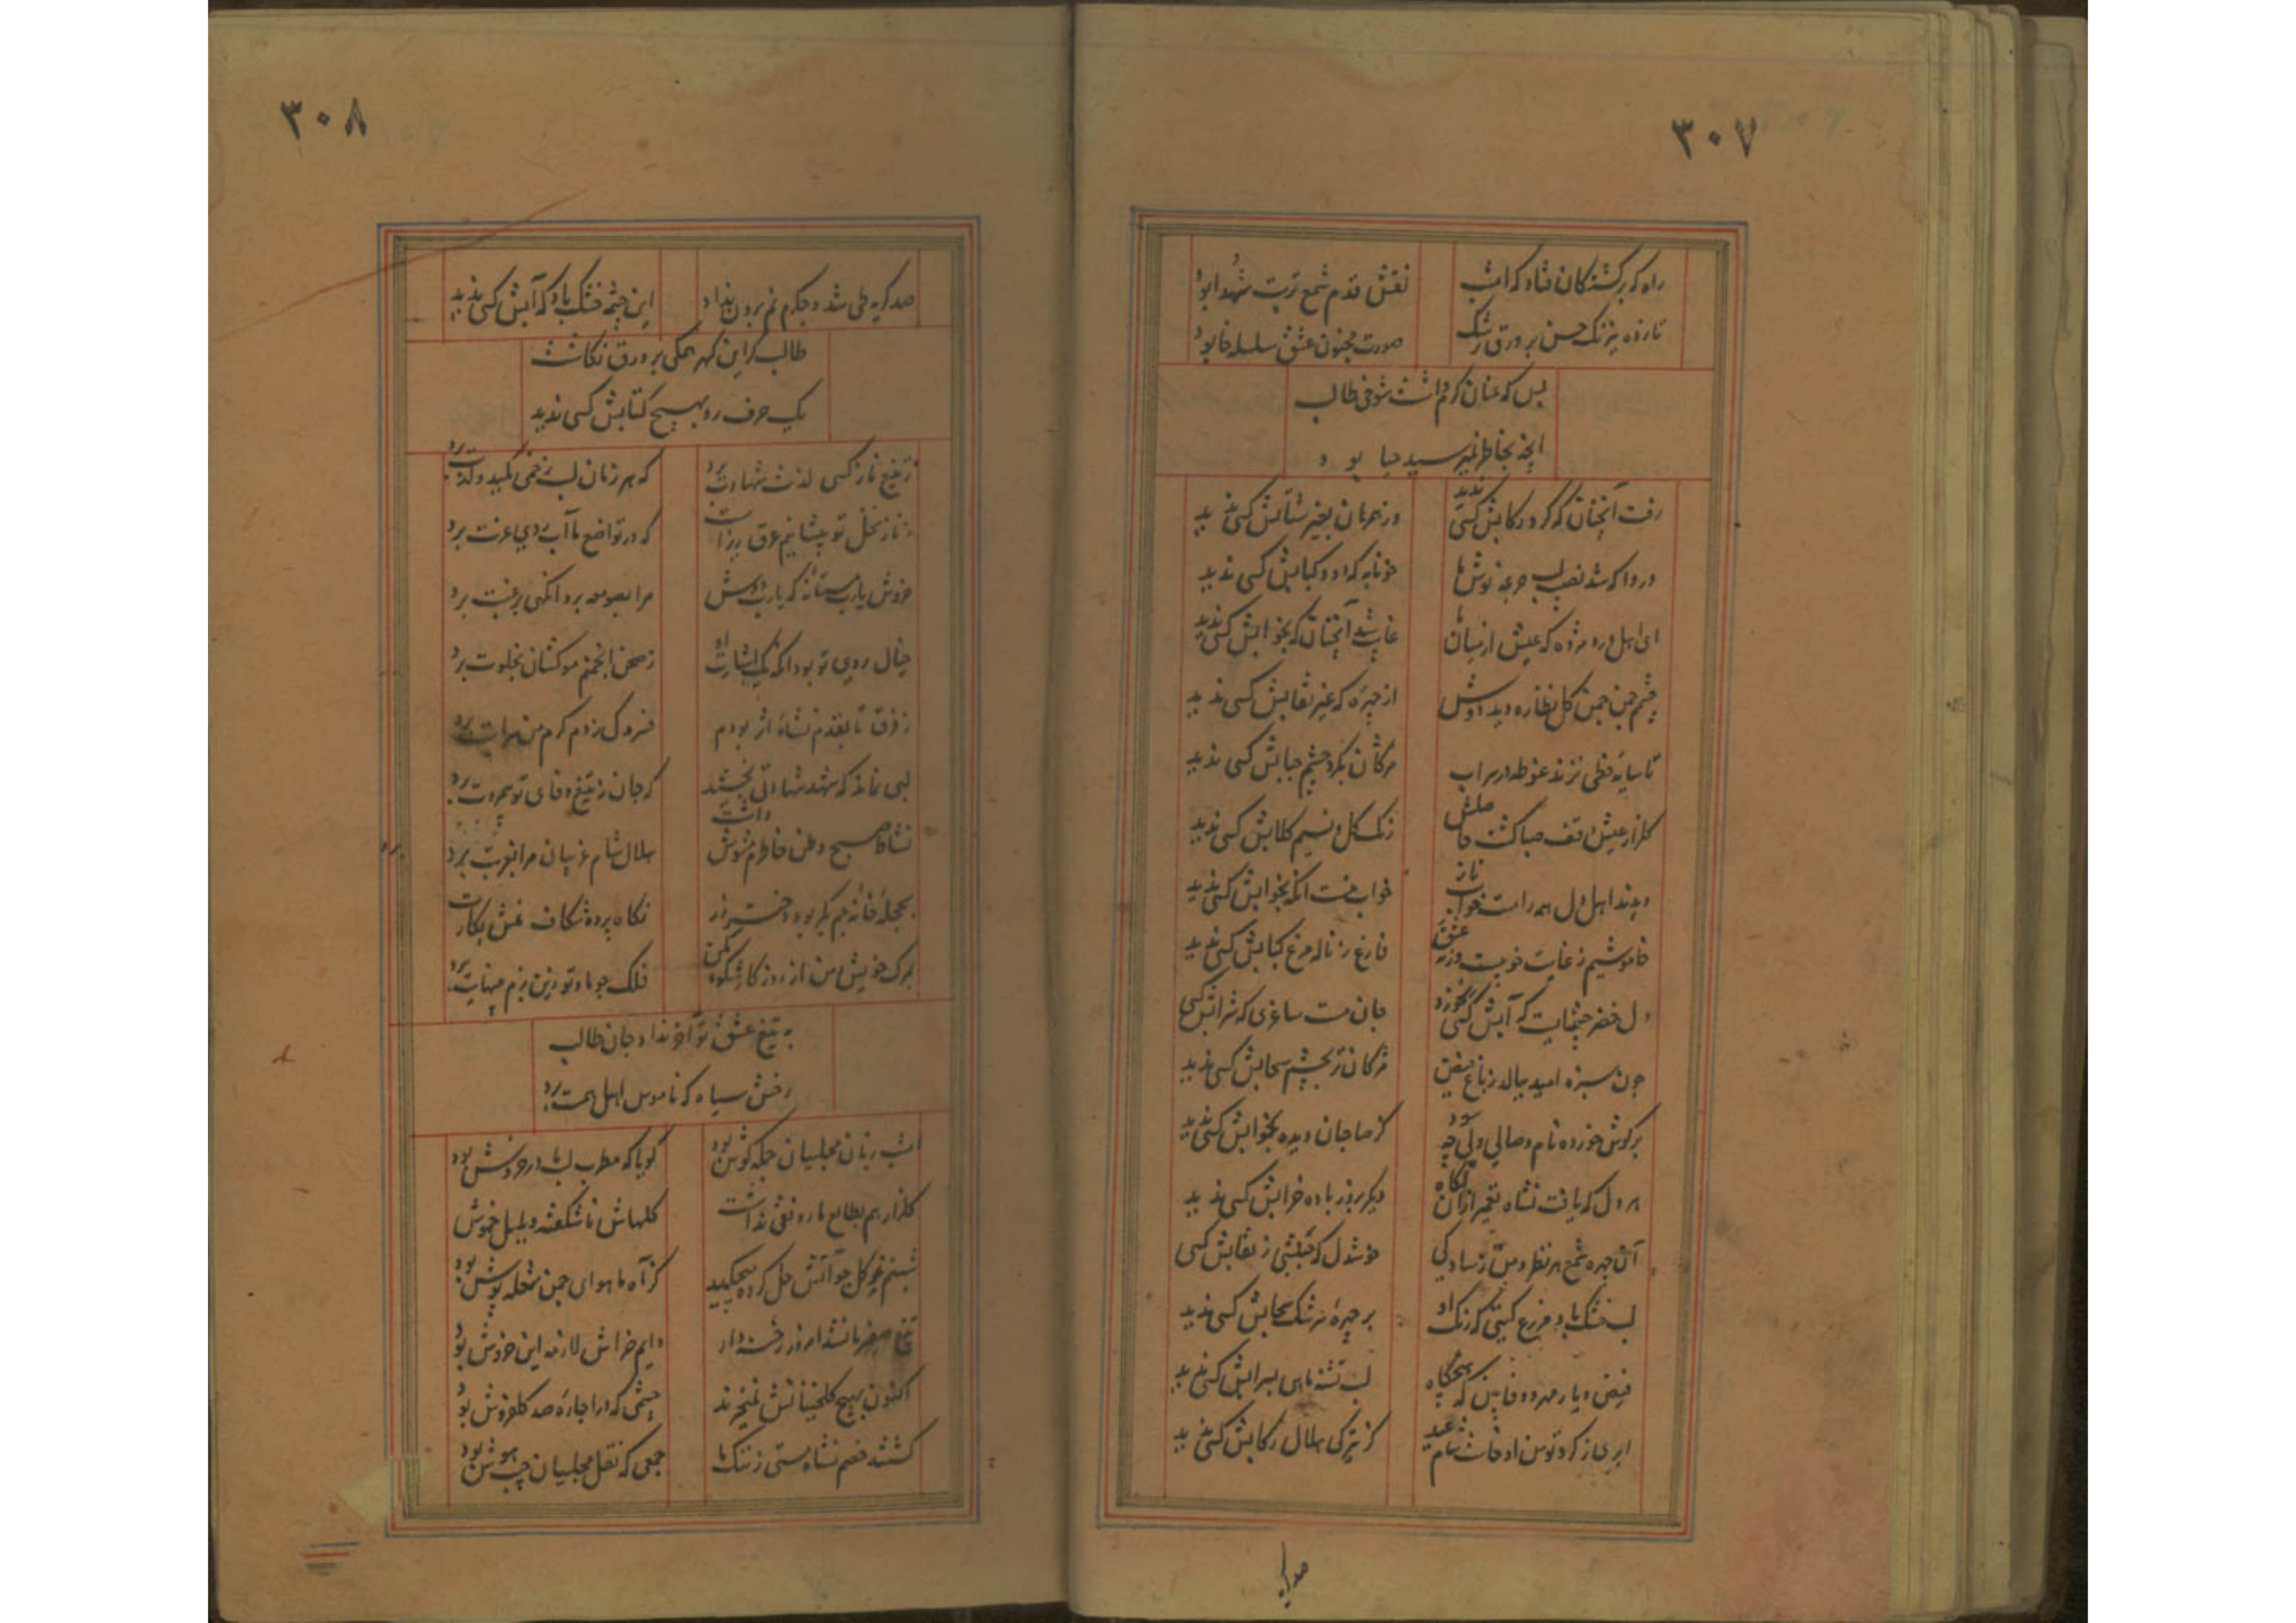 ۳۰۷
راه که بر کشتکان فتاد که امشب
نقش قدم شمع تربت شهدا بود
تا زده نیرنک حسن بر ورق رشک
صورت مجنون عشق سلسله خا بود
بس که عنان کرم داشت شوخی طالب
انچه بخاطر نمیرسید حیا بود
رفت آنچنان که کرد رکابش کسی ندید
وز همرهان بغیر شتابش کسی ندید
دردا که شد نصیب لب جرعه نوش ما
خونابه که دود کبابش کسی ندید
ای اهل درد مژده که عیش از میان ما
غایب شد آنچنان که بخوابش کسی ندید
چشمم چمن چمن کل نظاره دید دوش
از چهره که غیر نقابش کسی ندید
تا سایه خطی نزند غوطه در سراب
مژکان بکرد چشم حبابش کسی ندید
کلزار عیش وقف صبا کشت
رنک کل و نسیم کلابش کسی ندید
دیدند اهل دل همه را مست خواب ناز
خواب منست انکه بخوابش کسی ندید
خاموشیم ز غایت خو نیست ورنه عشق
فارغ ز ناله مرغ کبابش کسی ندید
دل خضر چشمه‌ایست که آبش کسی نخورد
جان مست ساغری که شرابش کسی
چون سبزه امید ببالد ز باغ فیض
مژکان تر بچشم سحابش کسی ندید
بر کوش خورده نام وصالی ولی چه سود
کز صاحبان دیده بخوابش کسی ندید
هر دل که یافت نشاه تعمیر ازان نکاه
دیکر بزور باده خرابش کسی ندید
آن چهره شمع هر نظر و من ز سادکی
خوشدل که جنبشی ز نقابش کسی
لب خشک باد مزرع کیتی که رنک او
بر چهره سرشک سحابش کسی ندید
فیض دیار مهر و وفا بین که هیچکاه
لب تشنه ماهی سرابش کسی ندید
ابری ز کرد توسن او خاست شام عید
کز تیرکی هلال رکابش کسی ندید
صد کریه
۳۰۸
صد کریه طی شد و جکرم نم برون نداد
این چشمه خشک باد که آبش کسی ندید
طالب کز این کهر همکی بر ورق نکاشت
یک حرف رد بهیچ کتابش کسی ندید
ز تیغ ناز کسی لذت شهادت برد
که هر زمان لب زخمی مکید و لذت برد
ز ناز نخل تو پیشانیم عرق ریز است
که در تواضع ما آب روی عزت برد
خروش یارب مستانه که یارب دوش
مرا بصومعه برد انکهی برغبت برد
خیال روی تو بود انکه یک اشارت او
ز صحن انجمنم موکشان بخلوت برد
ز فرق تا بقدم نشاه اثر بودم
فسردکی ز دم کرم من سرایت برد
لبی نماند که شهد شهادتی نچشد
که جان ز تیغ وفای تو بمروت برد
نشاط صبح وطن خاطرم مشوش داشت
هلال شام غریبان مرا بغربت برد
بحجله خانه جم بکر بود دختر رز
نکاه پرده شکاف منش بکارت برد
بمرک خویش من از روزکار شکوه مکن
فلک چو ما و تو زین بزم بینهایت برد
به تیغ عشق تو آخر نداد جان طالب
رخش سیاه که ناموس اهل همت برد
امشب زبان مجلسیان جمله کوش بود
کویا که مطرب لب ما در خروش بود
کلزار هم بطالع ما رونقی نداشت
کلهاش ناشکفته و بلبل خموش بود
شبنم ز کل چو آتش حل کرده میچکید
کز آه ما هوای چمن شعله پوش بود
تیغ صفیر ما نشد امروز رخنه دار
دایم خراش لازمه این خروش بود
اکنون بهیچ کلخنیانش نمیخرند
چشمی که در اجاره صد کلفروش بود
کشتند خصم نشاه مستی ز ننک ما
جمعی که نقل مجلسیان حب هوش بود